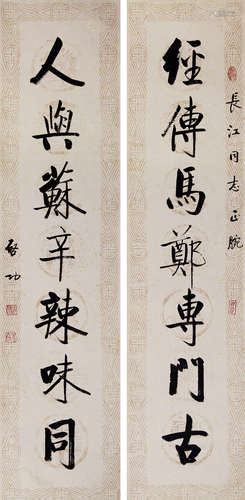 長江同志正腕
經傳馬鄭專門古
人與蘇辛辣味同
啓功